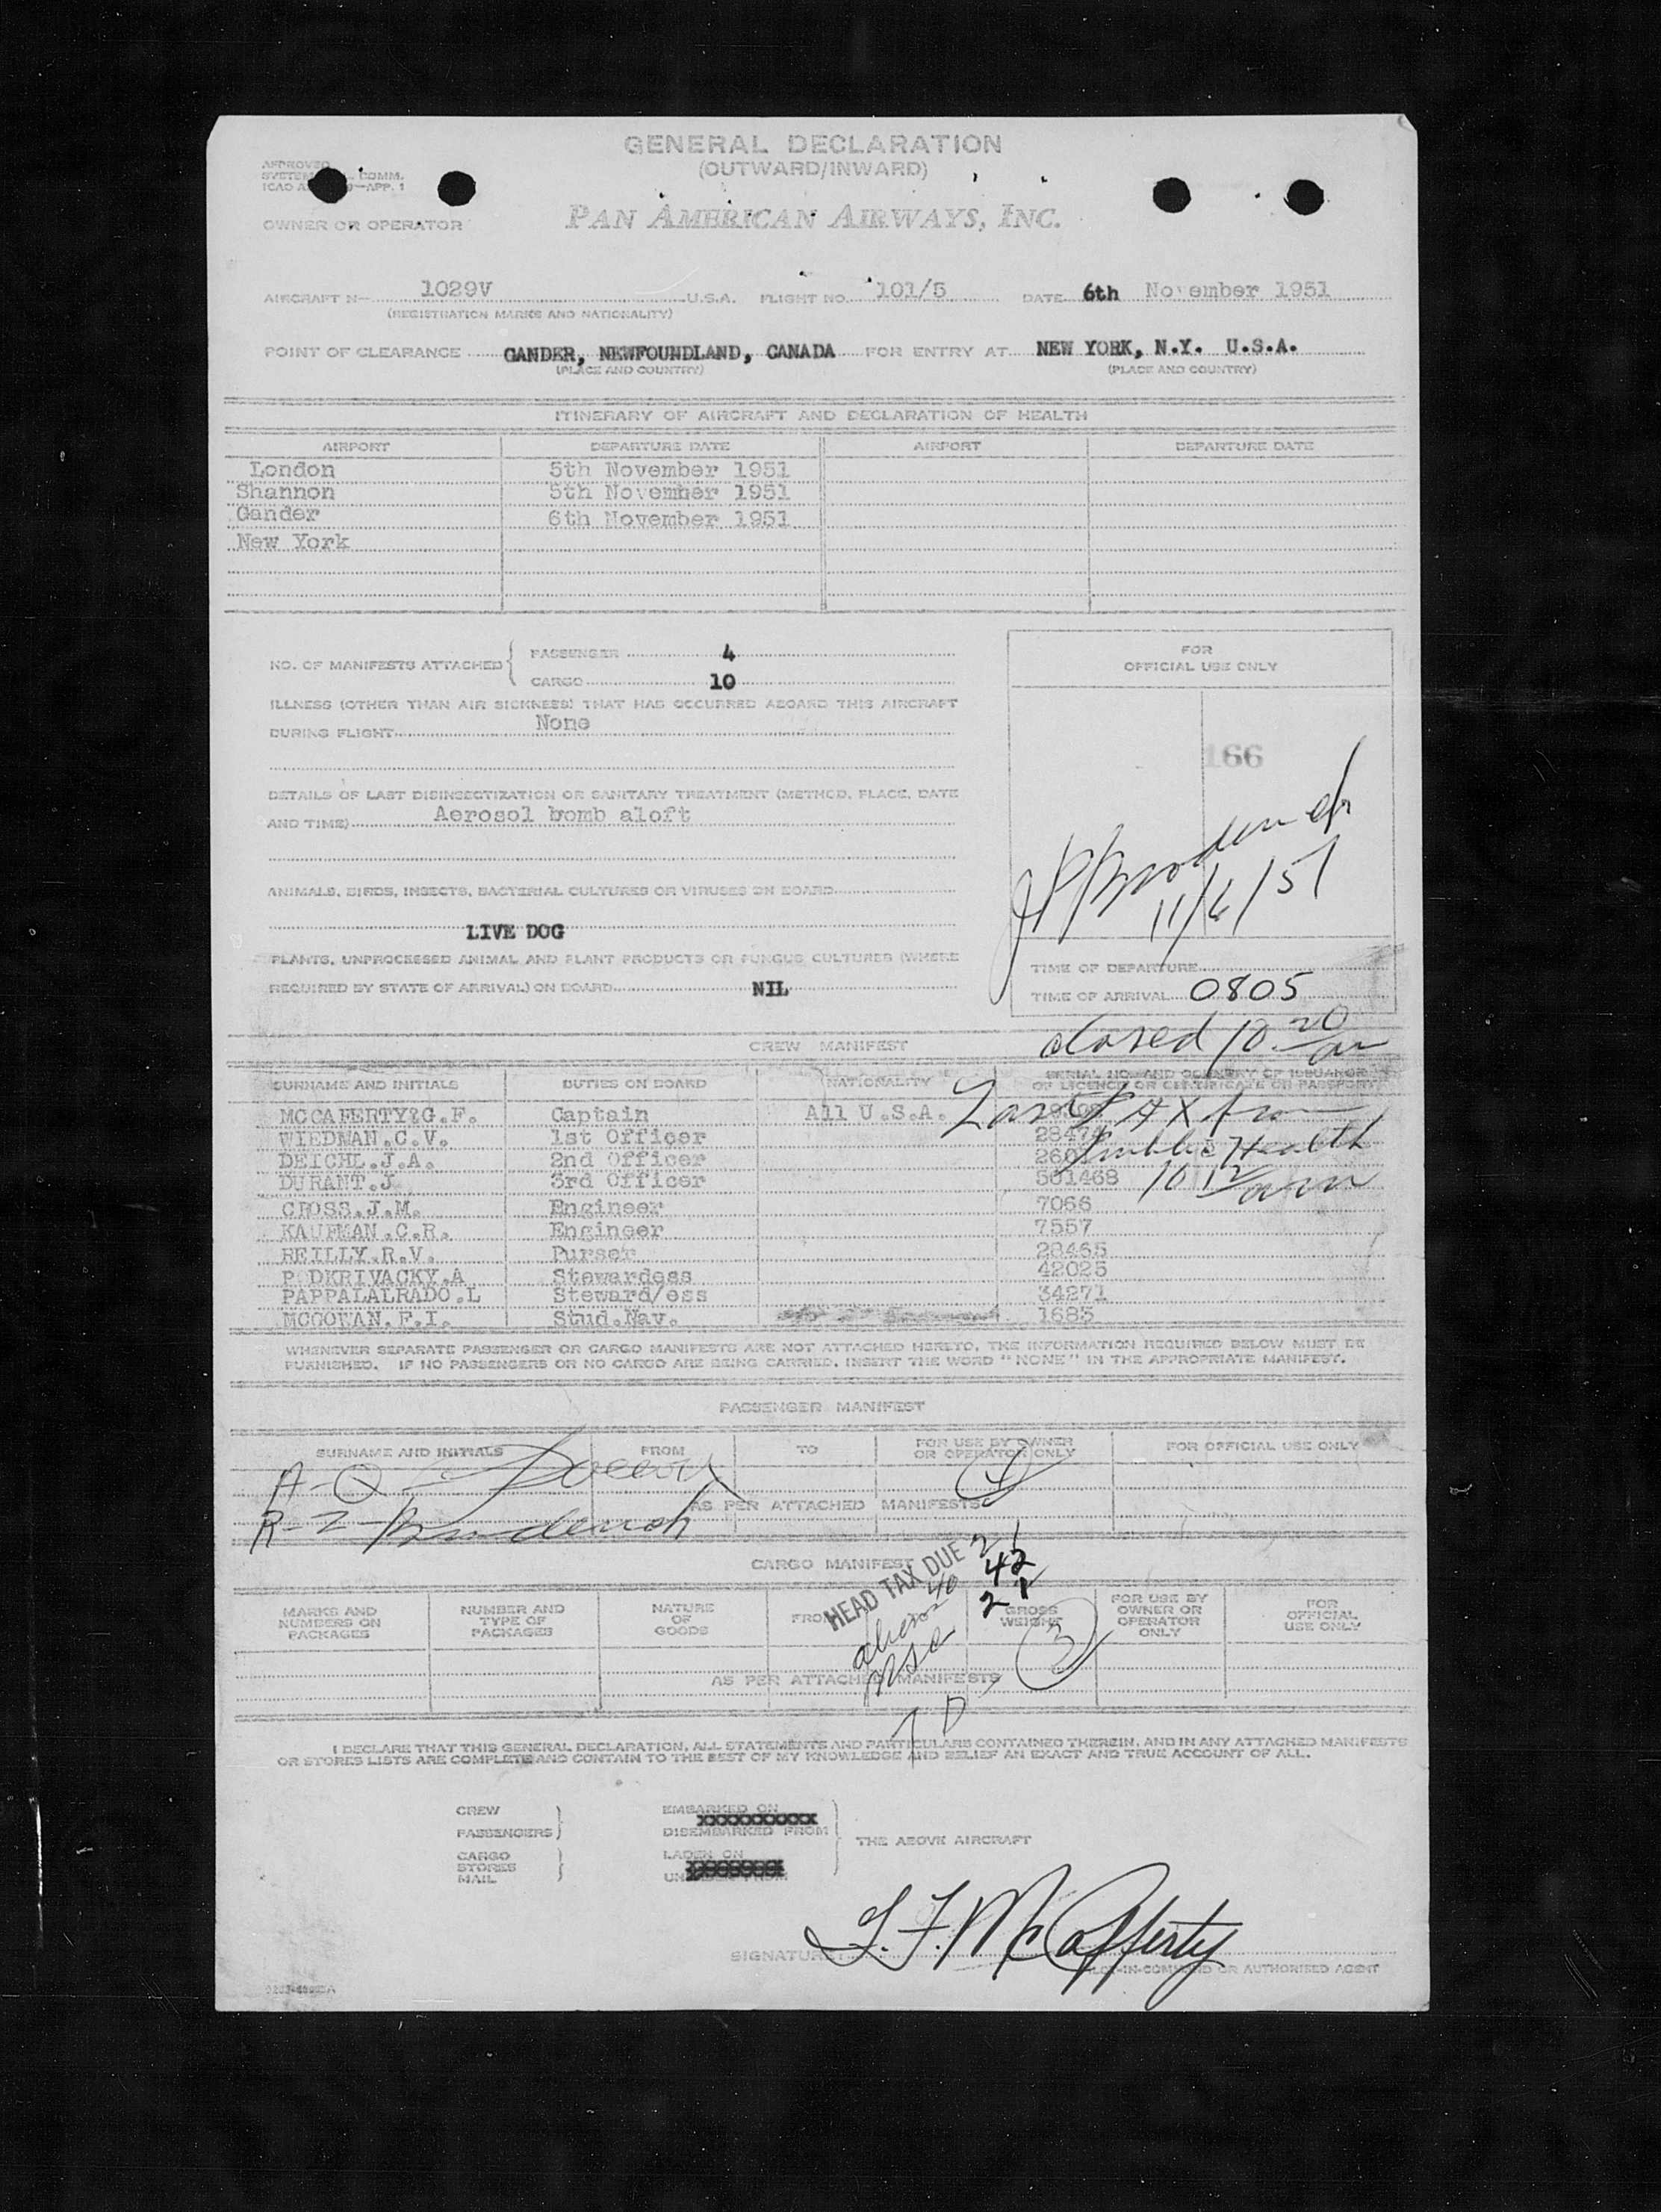 GENERAL DECLARATION
(OUTWARD/INWARD)
APPROVED
SYSTEM COMM.
ICAO —APP. 1
OWNER OR OPERATOR PAN AMERICAN AIRWAYS, INC.
AIRCRAFT N— 1029V U.S.A. FLIGHT NO. 101/5 DATE 6th November 1951
(REGISTRATION MARKS AND NATIONALITY)
POINT OF CLEARANCE GANDER, NEWFOUNDLAND, CANADA FOR ENTRY AT NEW YORK, N.Y. U.S.A.
(PLACE AND COUNTRY) (PLACE AND COUNTRY)
ITINERARY OF AIRCRAFT AND DECLARATION OF HEALTH
AIRPORT DEPARTURE DATE AIRPORT DEPARTURE DATE
London 5th November 1951
Shannon 5th November 1951
Gander 6th November 1951
New York
NO. OF MANIFESTS ATTACHED
PASSENGER 4
CARGO 10
FOR
OFFICIAL USE ONLY
ILLNESS (OTHER THAN AIR SICKNESS) THAT HAS OCCURRED ABOARD THIS AIRCRAFT
DURING FLIGHT None
166
DETAILS OF LAST DISINSECTIZATION OR SANITARY TREATMENT (METHOD, PLACE, DATE
AND TIME) Aerosol bomb aloft
11/6/51
ANIMALS, BIRDS, INSECTS, BACTERIAL CULTURES OR VIRUSES ON BOARD
LIVE DOG
PLANTS, UNPROCESSED ANIMAL AND PLANT PRODUCTS OR FUNGUS CULTURES (WHERE
REQUIRED BY STATE OF ARRIVAL) ON BOARD NIL
TIME OF DEPARTURE
TIME OF ARRIVAL 0805
closed 10 20 am
CREW MANIFEST
SURNAME AND INITIALS DUTIES ON BOARD NATIONALITY SERIAL NO. AND COUNTRY OF ISSUANCE
OF LICENCE OR CERTIFICATE OR PASSPORT
MCCAFERTY&G.F. Captain All U.S.A.
Last PAX from
WIEDMAN.C.V. 1st Officer
Public Health
DEICHL.J.A. 2nd Officer
DURANT.J 3rd Officer 501468
10 12 am
CROSS.J.M. Engineer 7066
KAUFMAN.C.R. Engineer 7557
REILLY.R.V. Purser 28465
P DKRIVACKY.A Stewardess 42025
PAPPALALRADO.L Steward/ess 34271
MCGOWAN.F.I. Stud.Nav. 1685
WHENEVER SEPARATE PASSENGER OR CARGO MANIFESTS ARE NOT ATTACHED HERETO, THE INFORMATION REQUIRED BELOW MUST BE
FURNISHED. IF NO PASSENGERS OR NO CARGO ARE BEING CARRIED, INSERT THE WORD "NONE" IN THE APPROPRIATE MANIFEST.
PASSENGER MANIFEST
SURNAME AND INITIALS FROM TO FOR USE BY OWNER
OR OPERATOR ONLY FOR OFFICIAL USE ONLY
A-Q
AS PER ATTACHED MANIFESTS
R-Z
CARGO MANIFEST
HEAD TAX DUE 21
42
21
aliens 40
MARKS AND
NUMBERS ON
PACKAGES
NUMBER AND
TYPE OF
PACKAGES
NATURE
OF
GOODS
GROSS
WEIGHT
FOR USE BY
OWNER OR
OPERATOR
ONLY
FOR
OFFICIAL
USE ONLY
3
AS PER ATTACHED MANIFESTS
I DECLARE THAT THIS GENERAL DECLARATION, ALL STATEMENTS AND PARTICULARS CONTAINED THEREIN, AND IN ANY ATTACHED MANIFESTS
OR STORES LISTS ARE COMPLETE AND CONTAIN TO THE BEST OF MY KNOWLEDGE AND BELIEF AN EXACT AND TRUE ACCOUNT OF ALL.
CREW
PASSENGERS
EMBARKED ON
XXXXXXXXXXX
DISEMBARKED FROM
THE ABOVE AIRCRAFT
CARGO
STORES
MAIL
LADEN ON
G. F. McCafferty
SIGNATURE
PILOT-IN-COMMAND OR AUTHORISED AGENT